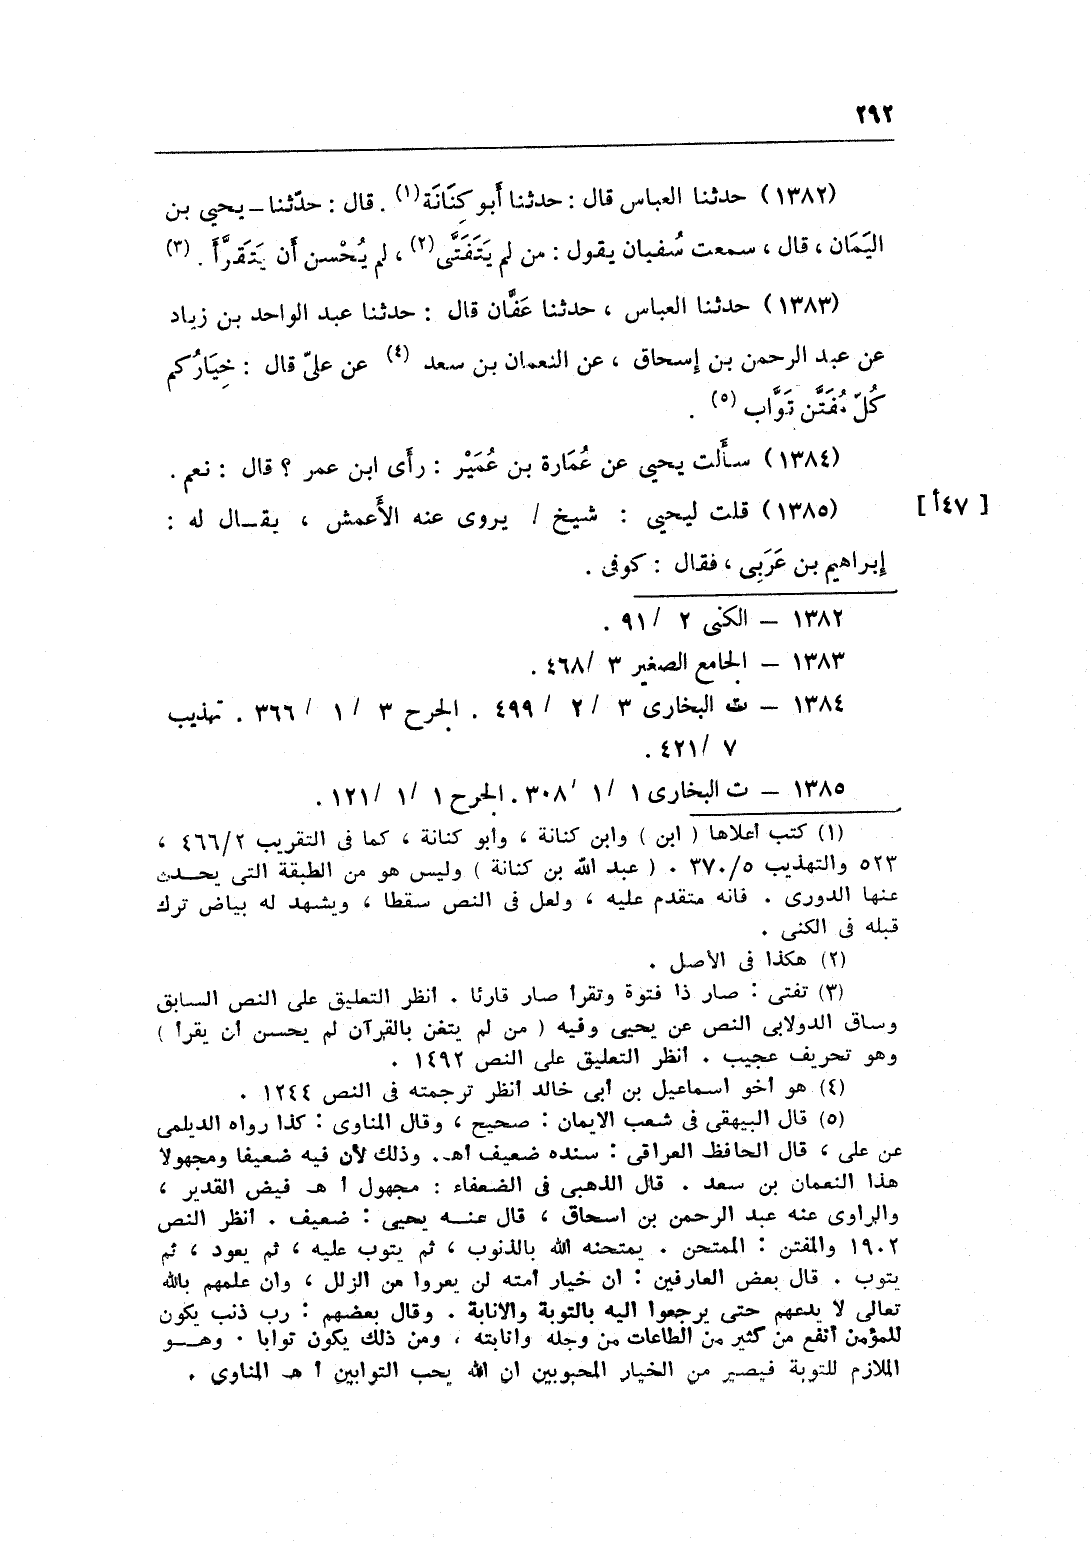 ٢٩٢
(١٣٨٢) حدثنا العباس قال : حدثنا أَبو كِنَانَة(١) . قال : حدّثنا ــ يحيي بن
اليَمَان ، قال ، سمعت سُفيان يقول : من لم يَتَفَتَّى(٢) ، لم يُحْسن أَن يَتَقرَّأَ . (٣)
(١٣٨٣) حدثنا العباس ، حدثنا عَفَّان قال : حدثنا عبد الواحد بن زياد
عن عبد الرحمن بن إسحاق ، عن النعمان بن سعد (٤) عن عليّ قال : خِيَارُكم
كُلّ مُفَتَّن تَوَّاب (٥) .
(١٣٨٤) سأَلت يحيي عن عُمَارة بن عُمَيْر : رأَى ابن عمر ؟ قال : نعم .
(١٣٨٥) قلت ليحيي : شيخ / يروى عنه الأَعمش ، يقــال له :
[ ٤٧أ ]
إبراهيم بن عَرَبِى ، فقال : كوفى .
١٣٨٢ – الكنى ٢ / ٩١ .
١٣٨٣ – الجامع الصغير ٣ / ٤٦٨ .
١٣٨٤ – ت البخارى ٣ / ٢ / ٤٩٩ . الجرح ٣ / ١ / ٣٦٦ . تهذيب
٧ / ٤٢١ .
١٣٨٥ – ت البخارى ١ / ١ / ٣٠٨ . الجرح ١ / ١ / ١٢١ .
(١) كتب أعلاها ( ابن ) وابن كنانة ، وأبو كنانة ، كما فى التقريب ٤٦٦/٢ ،
٥٢٣ والتهذيب ٣٧٠/٥ . ( عبد الله بن كنانة ) وليس هو من الطبقة التى يحــدث
عنها الدورى . فانه متقدم عليه ، ولعل فى النص سقطا ، ويشهد له بياض ترك
قبله فى الكنى .
(٢) هكذا فى الأصل .
(٣) تفتى : صار ذا فتوة وتقرأ صار قارئا . أنظر التعليق على النص السابق
وساق الدولابى النص عن يحيى وفيه ( من لم يتغن بالقرآن لم يحسن أن يقرأ )
وهو تحريف عجيب . أنظر التعليق على النص ١٤٩٢ .
(٤) هو أخو اسماعيل بن أبى خالد أنظر ترجمته فى النص ١٢٤٤ .
(٥) قال البيهقى فى شعب الايمان : صحيح ، وقال المناوى : كذا رواه الديلمى
عن على ، قال الحافظ العراقى : سنده ضعيف أهـ. وذلك لأن فيه ضعيفا ومجهولا
هذا النعمان بن سعد . قال الذهبى فى الضعفاء : مجهول أ هـ فيض القدير ،
والراوى عنه عبد الرحمن بن اسحاق ، قال عنــه يحيى : ضعيف . أنظر النص
١٩٠٢ والمفتن : الممتحن . يمتحنه الله بالذنوب ، ثم يتوب عليه ، ثم يعود ، ثم
يتوب . قال بعض العارفين : ان خيار أمته لن يعروا من الزلل ، وان علمهم بالله
تعالى لا يدعهم حتى يرجعوا اليه بالتوبة والانابة . وقال بعضهم : رب ذنب يكون
للمؤمن أنفع من كثير من الطاعات من وجله وانابته ، ومن ذلك يكون توابا . وهــو
الملازم للتوبة فيصير من الخيار المحبوبين ان الله يحب التوابين أ هـ المناوى .